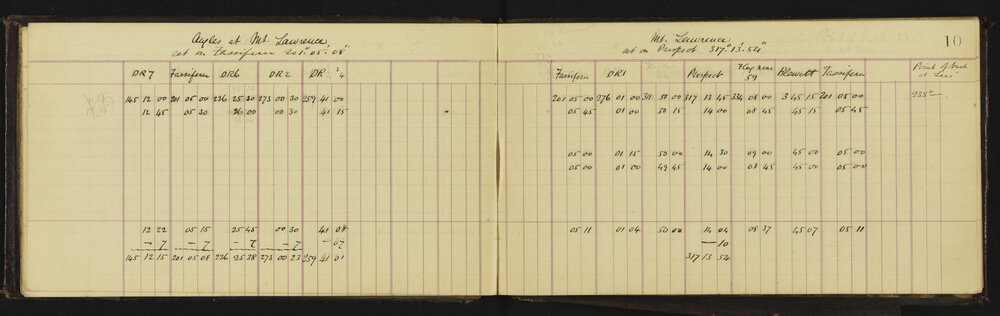 Angles at Mt. Lawrence
set on Fassifern 201° 05' 08"
DR7 Fassifern DR6 DR2 DR 3/4
145 12 00 201 05 00 226 25 30 273 00 30 259 41 00
12 45 05 30 26 00 00 30 41 15
12 22 05 15 25 45 00 30 41 08
— 7 — 7 — 7 — 7 — 07
145 12 15 201 05 08 226 25 38 273 00 23 259 41 01
Mt. Lawrence
set on Prospect 317° 13' 54"
10
Fassifern DR1 Prospect Flag near 59 Blewett Fassifern Point of
201 05 00 276 01 00 311 50 00 317 13 45 334 08 00 3 45 15 201 05 00 235°
05 45 01 00 50 15 14 00 08 45 45 15 05 45
05 00 01 15 50 00 14 30 09 00 45 00 05 00
05 00 01 00 49 45 14 00 08 45 45 00 05 45
05 11 01 04 50 00 14 04 08 37 45 07 05 11
— 10
317 13 54